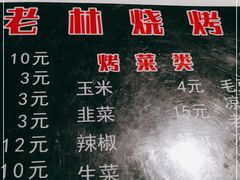 老林烧烤
10元 烤菜类
3元 玉米 4元 毛
3元 韭菜 15元 凉
3元
12元 辣椒 元
10元 生菜